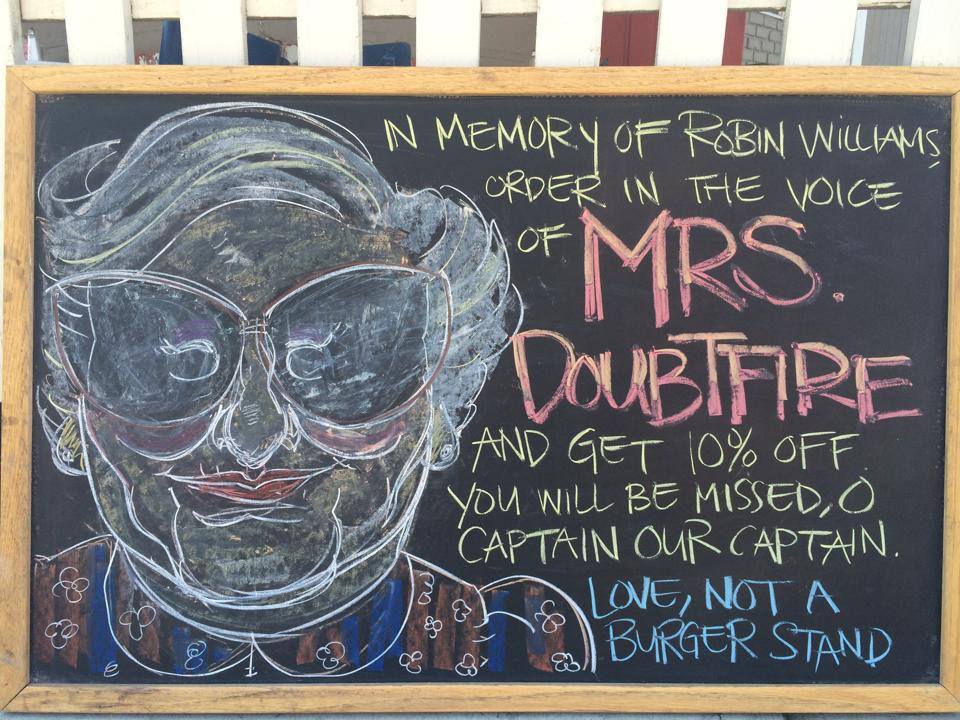 IN MEMORY OF ROBIN WILLIAMS,
ORDER IN THE VOICE
OF MRS.
DOUBTFIRE
AND GET 10% OFF
YOU WILL BE MISSED, O
CAPTAIN OUR CAPTAIN.
LOVE, NOT A
BURGER STAND